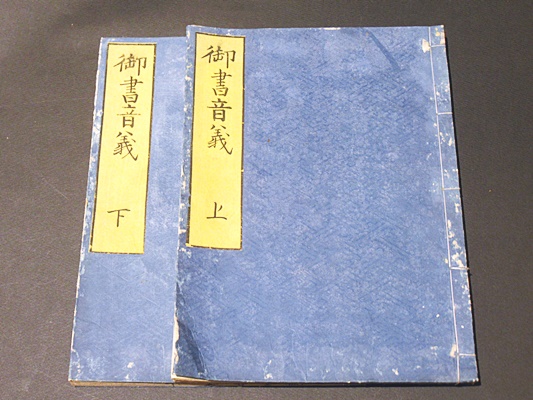 御書音義
上
御書音義
下